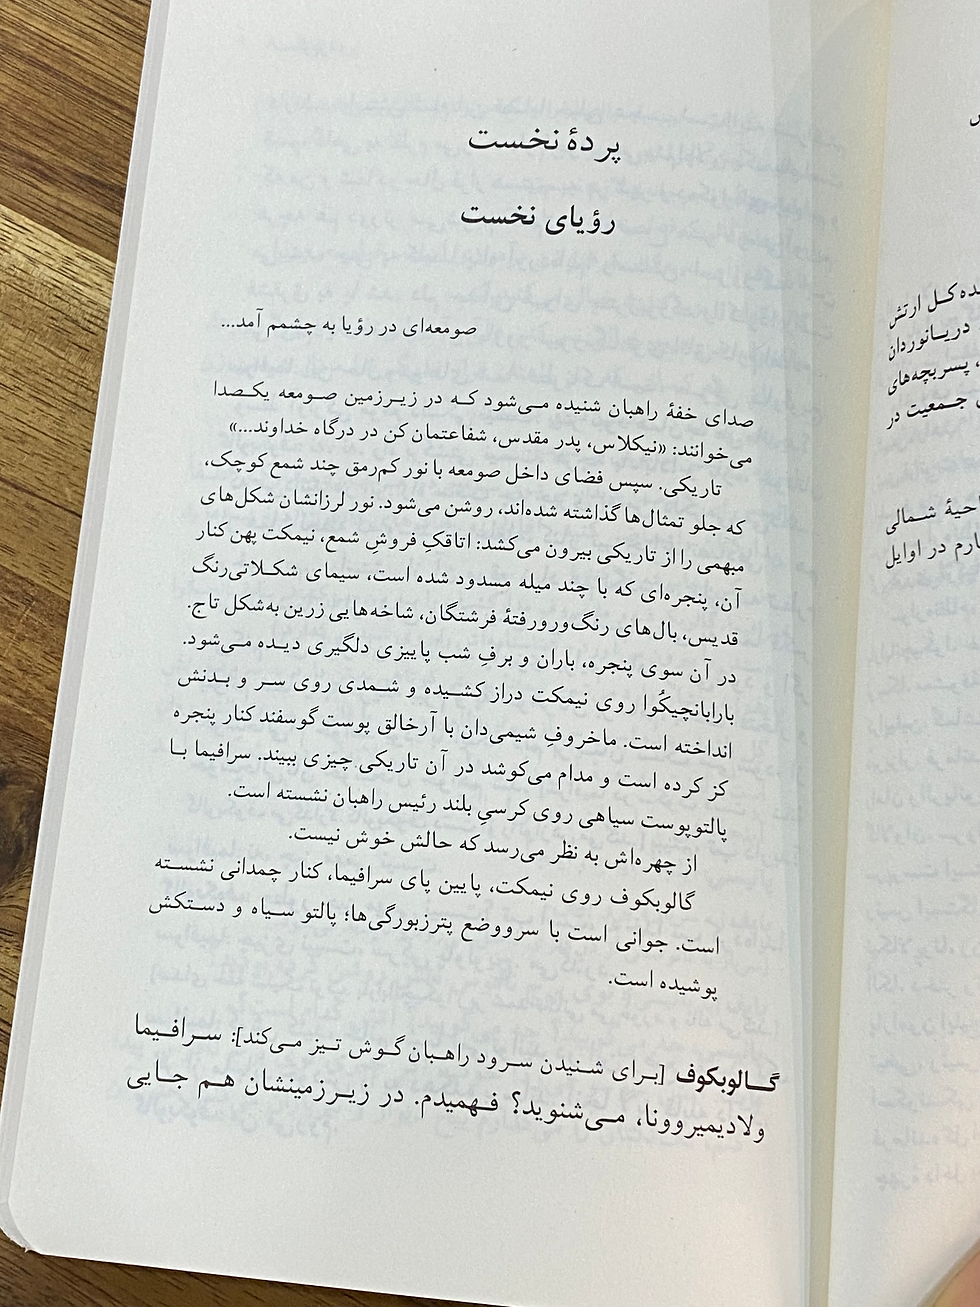 پردهٔ نخست
رؤیای نخست
صومعه‌ای در رؤیا به چشمم آمد...
صدای خفهٔ راهبان شنیده می‌شود که در زیرزمین صومعه یکصدا
می‌خوانند: «نیکلاس، پدر مقدس، شفاعتمان کن در درگاه خداوند...»
تاریکی. سپس فضای داخل صومعه با نور کم‌رمق چند شمع کوچک،
که جلو تمثال‌ها گذاشته شده‌اند، روشن می‌شود. نور لرزانشان شکل‌های
مبهمی را از تاریکی بیرون می‌کشد: اتاقکِ فروشِ شمع، نیمکت پهن کنار
آن، پنجره‌ای که با چند میله مسدود شده است، سیمای شکلاتی‌رنگ
قدیس، بال‌های رنگ‌ورورفتهٔ فرشتگان، شاخه‌هایی زرین به‌شکل تاج.
در آن سوی پنجره، باران و برفِ شب پاییزی دلگیری دیده می‌شود.
بارابانچیکُوا روی نیمکت دراز کشیده و شمدی روی سر و بدنش
انداخته است. ماخروفِ شیمی‌دان با آرخالق پوست گوسفند کنار پنجره
کز کرده است و مدام می‌کوشد در آن تاریکی چیزی ببیند. سرافیما با
پالتوپوست سیاهی روی کرسیِ بلند رئیس راهبان نشسته است.
از چهره‌اش به نظر می‌رسد که حالش خوش نیست.
گالوبکوف روی نیمکت، پایین پای سرافیما، کنار چمدانی نشسته
است. جوانی است با سرووضع پترزبورگی‌ها؛ پالتو سیاه و دستکش
پوشیده است.
گالوبکوف [برای شنیدن سرود راهبان گوش تیز می‌کند]: سرافیما
ولادیمیروونا، می‌شنوید؟ فهمیدم. در زیرزمینشان هم جایی
ده کل ارتش
دریانوردان
، پسربچه‌های
جمعیت در
حیهٔ شمالی
ارم در اوایل